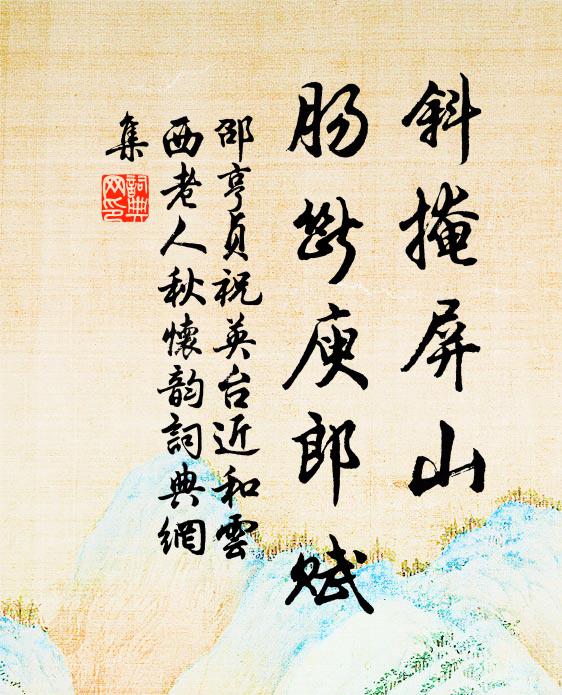 斜掩屏山
肠断庾郎赋
邵亨貞祝英台近和雲
西老人秋懷韵詞典網
集
詞典
网印